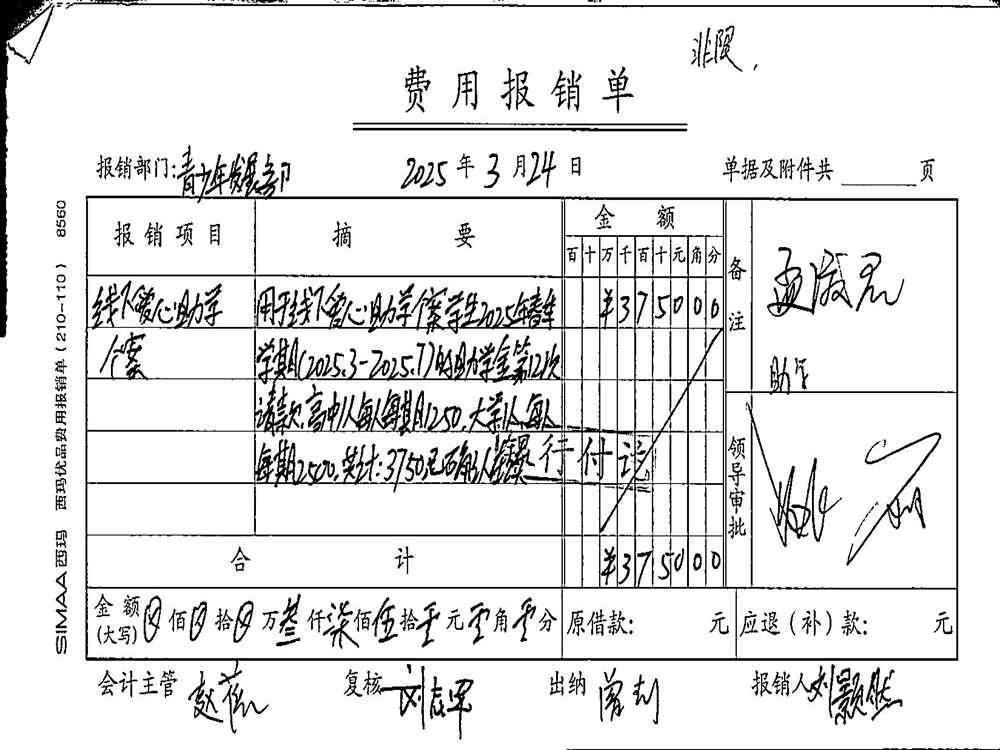 非限,
费用报销单
报销部门:青少年发展部 2025年3月24日 单据及附件共 页
SIMAA西玛 西玛优品费用报销单(210-110) 8560
报销项目 摘要 金额 备注
百十万千百十元角分
线下爱心助学 用于线下爱心助学个案学生2025年春季 ¥375000
个案 学期(2025.3-2025.7)的助学金第12次
请款,高中1人每人每期1250,大学1人,每人
每期2500,共计:3750元
银行付讫
助学
领导审批
合计 ¥375000
金额(大写) 佰 拾 万叁仟柒佰伍拾零元零角零分 原借款: 元 应退(补)款: 元
会计主管 复核 刘志军 出纳 曾利 报销人 刘颢然